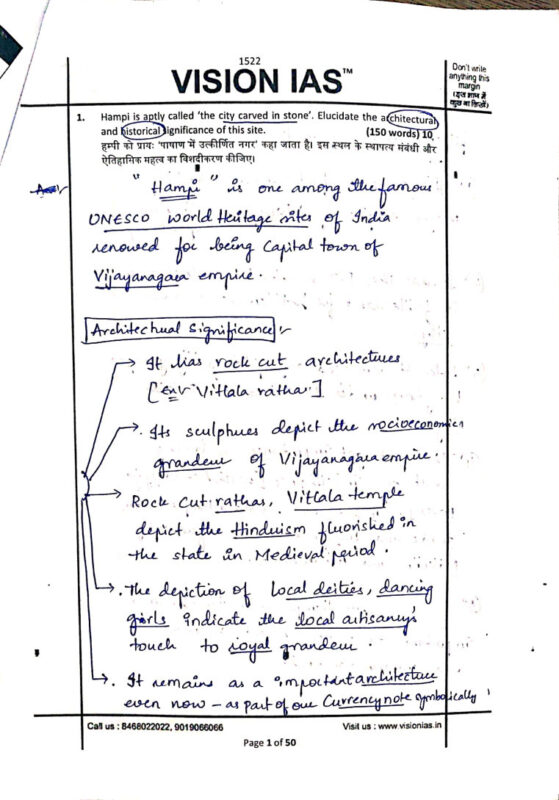 1522
VISION IAS™
Don't write
anything this
margin
(इस भाग में
कुछ ना लिखें)
1. Hampi is aptly called 'the city carved in stone'. Elucidate the architectural
and historical significance of this site. (150 words) 10
हम्पी को प्रायः 'पाषाण में उत्कीर्णित नगर' कहा जाता है। इस स्थल के स्थापत्य संबंधी और
ऐतिहासिक महत्व का विशदीकरण कीजिए।
Ans
"Hampi" is one among the famous
UNESCO World Heritage sites of India
renowed for being Capital town of
Vijayanagara empire.
Architectual Significance
→ It has rock cut architectures
[ Vitlala ratha]
→ Its sculptures depict the socioeconomic
grandeur of Vijayanagara empire.
→ Rock cut rathas, Vitlala temple
depict the Hinduism fluorished in
the state in Medieval period.
→ The depiction of local deities, dancing
girls indicate the local artisanry's
touch to royal grandeur.
→ It remains as a important architecture
even now - as part of our Currency note symbolically
Call us : 8468022022, 9019066066
Visit us : www.visionias.in
Page 1 of 50